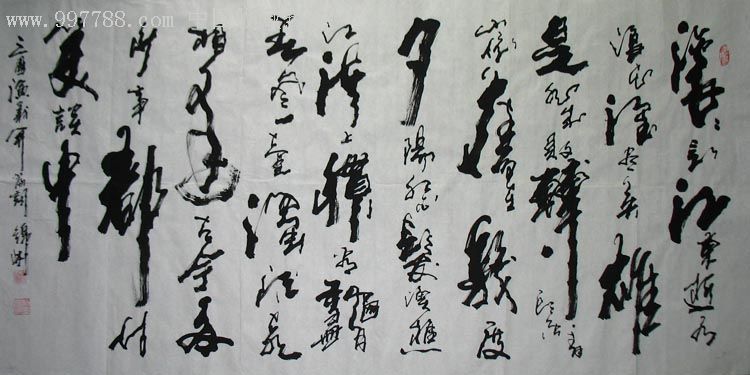 www.997788.com
滚滚长江东逝水
浪花淘尽英雄
是非成败转头空青
山依旧在几度
夕阳红白发渔樵
江渚上惯看秋月
春风一壶浊酒喜
相逢古今多
少事都付
笑谈中
三国演义开篇词